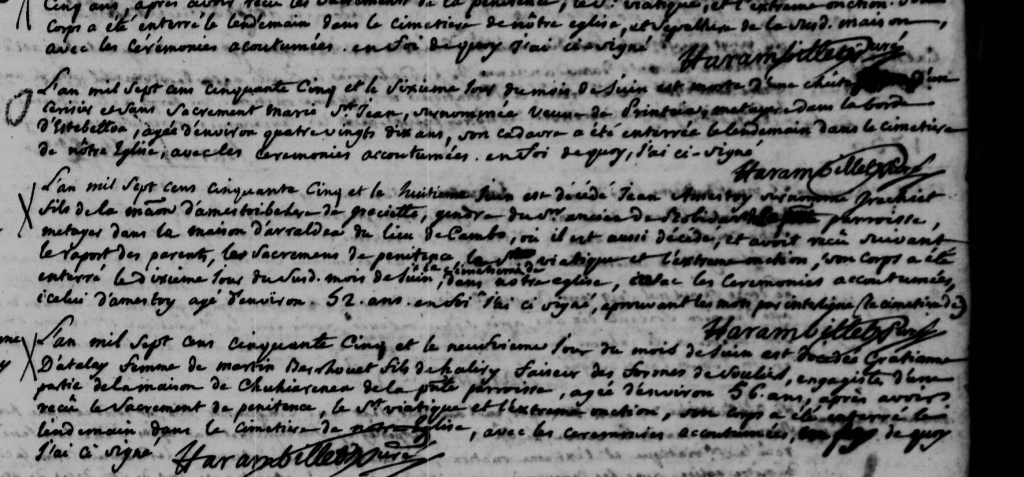 Cinq ans, après avoir reçu les Sacremens de la penitence, le St. viatique, et l'extreme onction. Son
corps a été enterré le lendemain dans le cimetiere de nôtre eglise, et sepulture de la Susd. maison,
avec les Cérémonies acoutumées. en foi de quoy j'ai ci signé
Harambillet Curé
L'an mil Sept cens Cinquante Cinq et le Sixieme Jour du mois de Juin est morte d'une chûte d'un
Cerisier et Sans Sacrement marie St. Jean, Surnommée Veuve de metayere dans la borde
agée d'environ quatre vingts dix ans, son cadavre a été enterrée le lendemain dans le cimetiere
de nôtre Eglise, avec les ceremonies accoutumées. en foi de quoy, j'ai ci-signé
Harambillet Curé
L'an mil Sept cens Cinquante Cinq et le huitieme Juin est décédé Jean Amestoy surnommé
fils de la maon d'amestoibehere de gendre du Sr. ancien de parroisse,
metayer dans la maison d'arraldea du lieu de Cambo, où il est aussi décédé, et avoit reçu suivant
le raport des parents, les Sacremens de penitence, le viatique et l'extreme onction, son corps a été
le cimetiere de
enterré le dixieme Jour du Susd. mois de Juin, dans nôtre eglise, avec les Ceremonies accoutumées,
icelui d'amestoy agé d'environ 52. ans. en foi j'ai ci signé, aprouvant les mots par interligne (le cimetiere de)
Harambillet Curé
L'an mil Sept cens Cinquante Cinq et le neufvieme Jour du mois de Juin est décédée Gratianne
D'atalay femme de martin Berrhouet fils de faiseur des formes de Souliés, engagiste d'une
partie de la maison de de la pnte parroisse, agée d'environ 56. ans, après avoir
reçû le Sacrement de penitence, le St. viatique et l'extreme onction, son corps a été enterré le
lendemain dans le Cimetiere de notre Eglise, avec les ceremonies accoutumées, en foy de quoy
j'ai ci signé Harambillet Curé